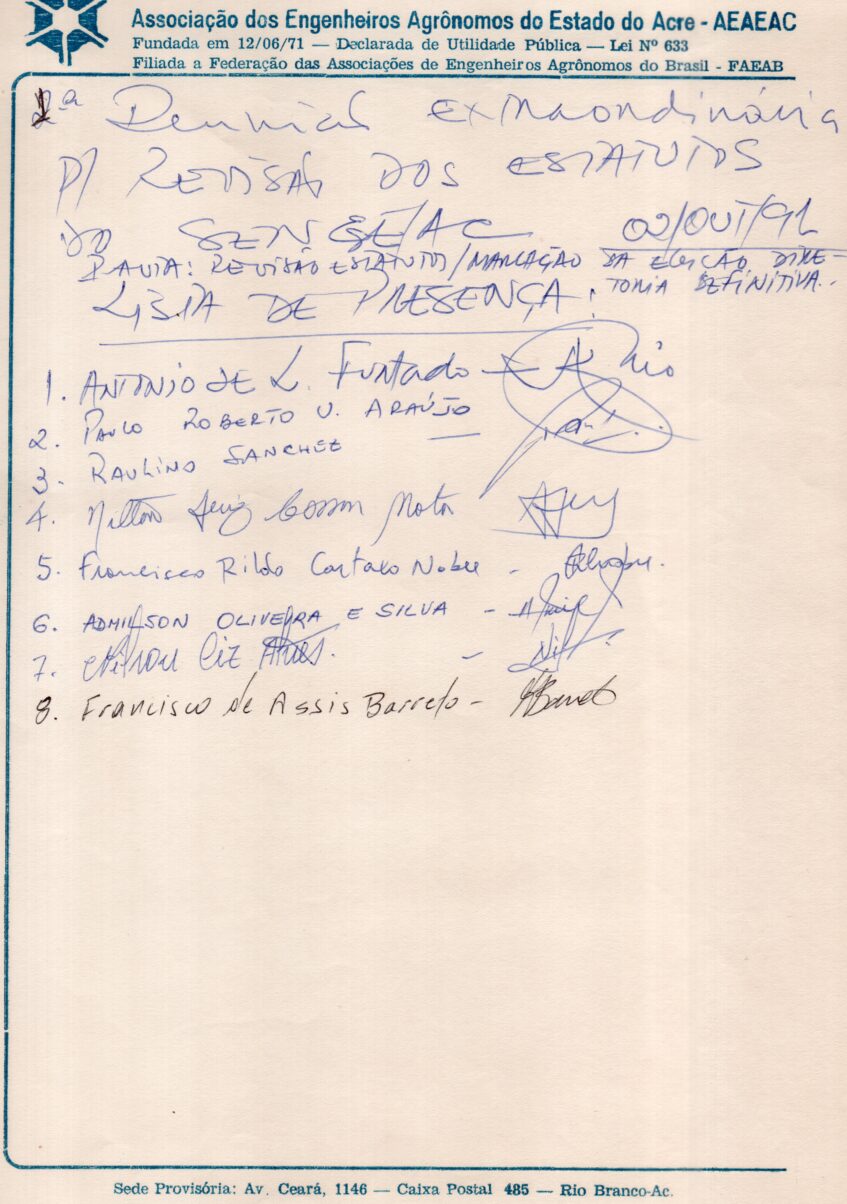 Associação dos Engenheiros Agrônomos do Estado do Acre - AEAEAC
Fundada em 12/06/71 — Declarada de Utilidade Pública — Lei Nº 633
Filiada a Federação das Associações de Engenheiros Agrônomos do Brasil - FAEAB
Reunião Extraordinária
P/ REVISÃO DOS ESTATUTOS
DO SENGE/AC 02/OUT/91
PAUTA: REVISÃO ESTATUTOS/MARCAÇÃO DA ELEIÇÃO DIRE-
TORIA DEFINITIVA.
LISTA DE PRESENÇA:
1. ANTONIO DE L. Furtado -
2. PAULO ROBERTO V. ARAÚJO
3. RAULINO SANCHEZ —
4. Nilton Luiz Cosson Mota
5. Francisco Rildo Cartaxo Nobre -
6. ADMILSON OLIVEIRA E SILVA -
7. -
8. Francisco de Assis Barreto - Barreto
Sede Provisória: Av. Ceará, 1146 — Caixa Postal 485 — Rio Branco-Ac.